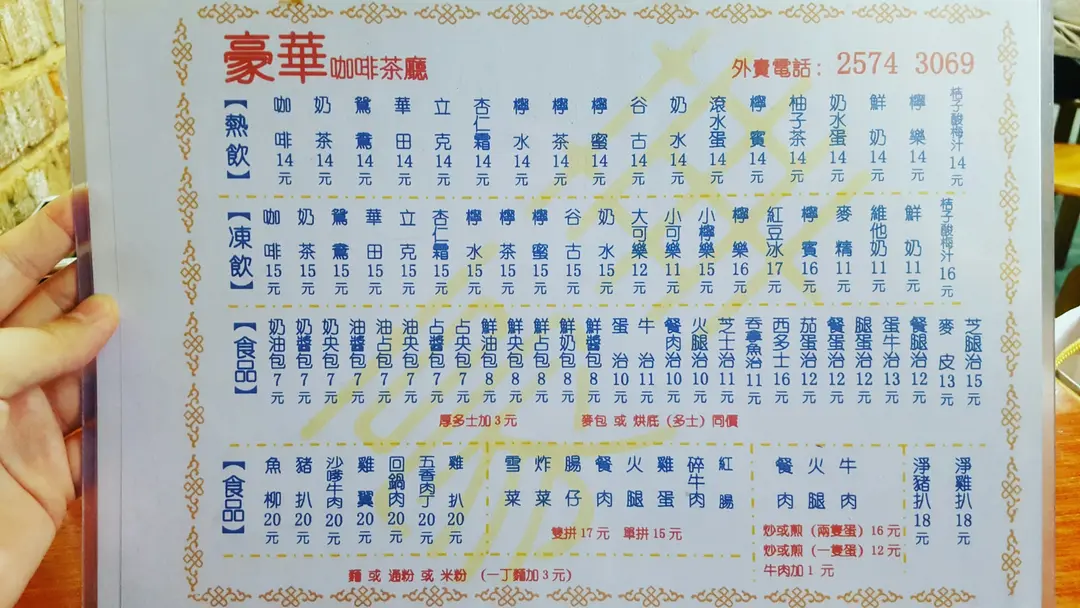 豪華咖啡茶廳 外賣電話：2574 3069
【熱飲】 咖啡14元 奶茶14元 鴛鴦14元 華田14元 立克14元 杏仁霜14元 檸水14元 檸茶14元 檸蜜14元 谷古14元 奶水14元 滾水蛋14元 檸賓14元 柚子茶14元 奶水蛋14元 鮮奶14元 檸樂14元 桔子酸梅汁14元
【凍飲】 咖啡15元 奶茶15元 鴛鴦15元 華田15元 立克15元 杏仁霜15元 檸水15元 檸茶15元 檸蜜15元 谷古15元 奶水15元 大可樂12元 小可樂11元 小檸樂15元 檸樂16元 紅豆冰17元 檸賓16元 麥精11元 維他奶11元 鮮奶11元 桔子酸梅汁16元
【食品】 奶油包7元 奶醬包7元 奶央包7元 油醬包7元 油占包7元 油央包7元 占醬包7元 占央包7元 鮮油包8元 鮮央包8元 鮮占包8元 鮮奶包8元 鮮醬包8元 蛋治10元 牛治11元 餐肉治10元 火腿治10元 芝士治11元 吞拿魚治11元 西多士16元 茄蛋治12元 餐蛋治12元 腿蛋治12元 蛋牛治13元 餐腿治12元 麥皮13元 芝腿治15元
厚多士加3元 麥包 或 烘底（多士）同價
【食品】 魚柳20元 豬扒20元 沙嗲牛肉20元 雞翼20元 回鍋肉20元 五香肉丁20元 雞扒20元 雪菜 炸菜 腸仔 餐肉 火腿 雞蛋 碎牛肉 紅腸 餐肉 火腿 牛肉 淨豬扒18元 淨雞扒18元
雙拼17元 單拼15元
炒或煎（兩隻蛋）16元
炒或煎（一隻蛋）12元
牛肉加1元
麵 或 通粉 或 米粉 （一丁麵加3元）